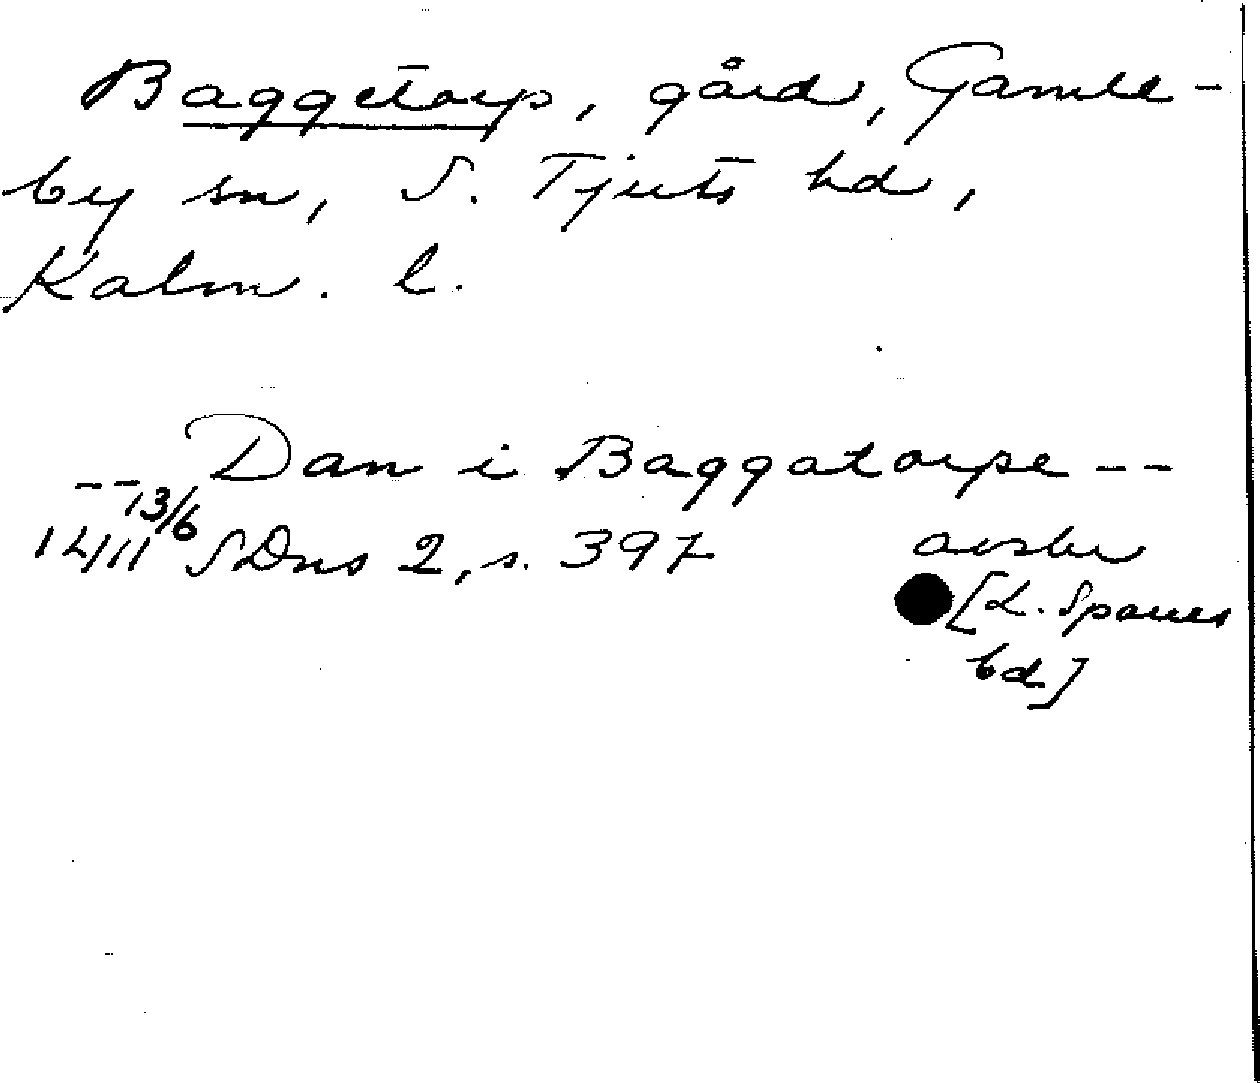 Baggetorp, gård, Gamle-
by sn, S. Tjusts hd,
Kalm. l.
-- Dan i Baggatorpe --
1411 13/6 SDns 2, s. 397 avskr
[L. Sparres
bd]